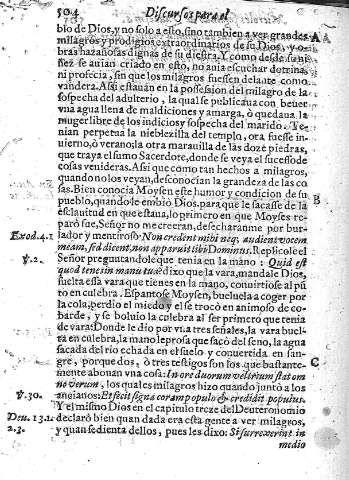 504 Discursos para el
blo de Dios, y no solo a esso, sino tambien a ver grandes A
milagros y prodigios extraordinarios de su Dios, y o-
bras hazañosas dignas de su diestra. Y como desde su ni
ñez se auian criado en esto, no auia escuchar dotrina,
ni profecia, sin que los milagros fuessen delante como
vandera. Assi estauan en la possession del milagro de la
sospecha del adulterio, la qual se publicaua con beuer
vna agua llena de maldiciones y amarga, ò quedaua la
muger libre de los indicios y sospecha del marido. Te-
nian perpetua la nieblezilla del templo, ora fuesse in-
uierno, ò verano; la otra marauilla de las doze piedras,
que traya el sumo Sacerdote, donde se veya el sucesso de
cosas venideras. Assi que como tan hechos a milagros,
quando no los veyan, desconocian la grandeza de las co
sas. Bien conocia Moysen este humor y condicion de su B
pueblo, quando le embiò Dios, para que le sacasse de la
esclauitud en que estaua, lo primero en que Moyses re-
parò fue, Señor no me creeran, desecharanme por bur-
Exod. 4.1 lador y mentiroso: Non credent mihi neq; audient vocem
meam, sed dicent, non apparuit tibi Dominus. Replicole el
℣.2. Señor preguntandole que tenia en la mano: Quid est
quod tenes in manu tua? dixo que la vara, mandale Dios,
suelta essa vara que tienes en la mano, conuirtiose al pũ
to en culebra. Espantose Moysen, bueluela a coger por
la cola, perdio el miedo y el se trocò en animoso de co-
barde, y se boluio la culebra al ser primero que tenia
de vara: Donde le dio por vna tres señales, la vara buel-
ta en culebra, la mano leprosa que sacò del seno, la agua
sacada del rio echada en el suelo y conuertida en san- C
gre, porque dos, ò tres testigos son los que bastante-
mente abonan vna cosa: In ore duorum vel trium stat om
ne verum, los quales milagros hizo quando juntò a los
℣.30. ancianos: Et fecit signa coram populo & credidit populus.
Y el mismo Dios en el capitulo treze del Deuteronomio
Deu. 13.1. declarò bien quan dada era esta gente a ver milagros,
2.3. y quan sedienta dellos, pues les dixo: Si surrexerint in
medio